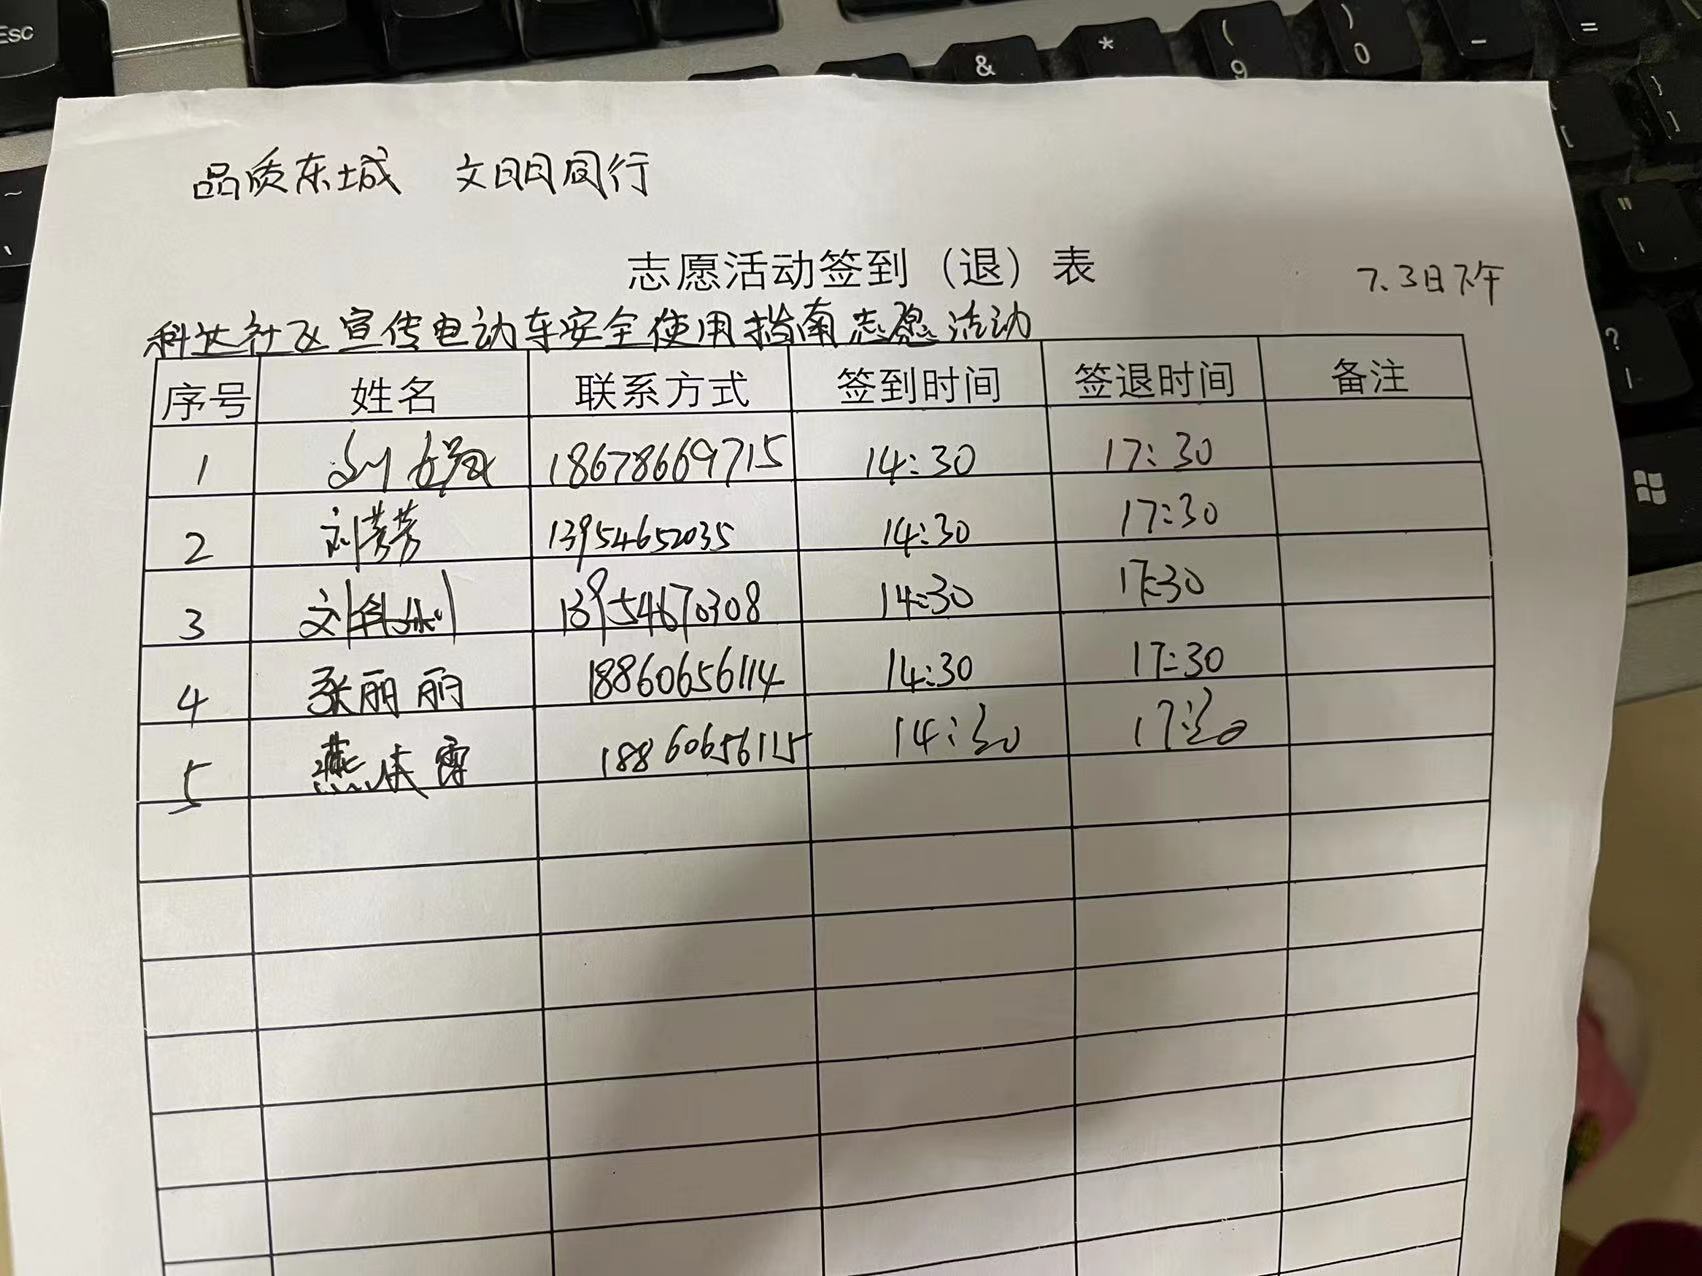 品质东城 文明同行
志愿活动签到（退）表
7.3日下午
科达社区宣传电动车安全使用指南志愿活动
序号 姓名 联系方式 签到时间 签退时间 备注
1 刘 18678669715 14:30 17:30
2 刘芳芳 13954652035 14:30 17:30
3 刘 13954670308 14:30 17:30
4 张丽丽 18860656114 14:30 17:30
5 燕 18860656115 14:30 17:30
Esc
&
*
( 9
) 0
-
=